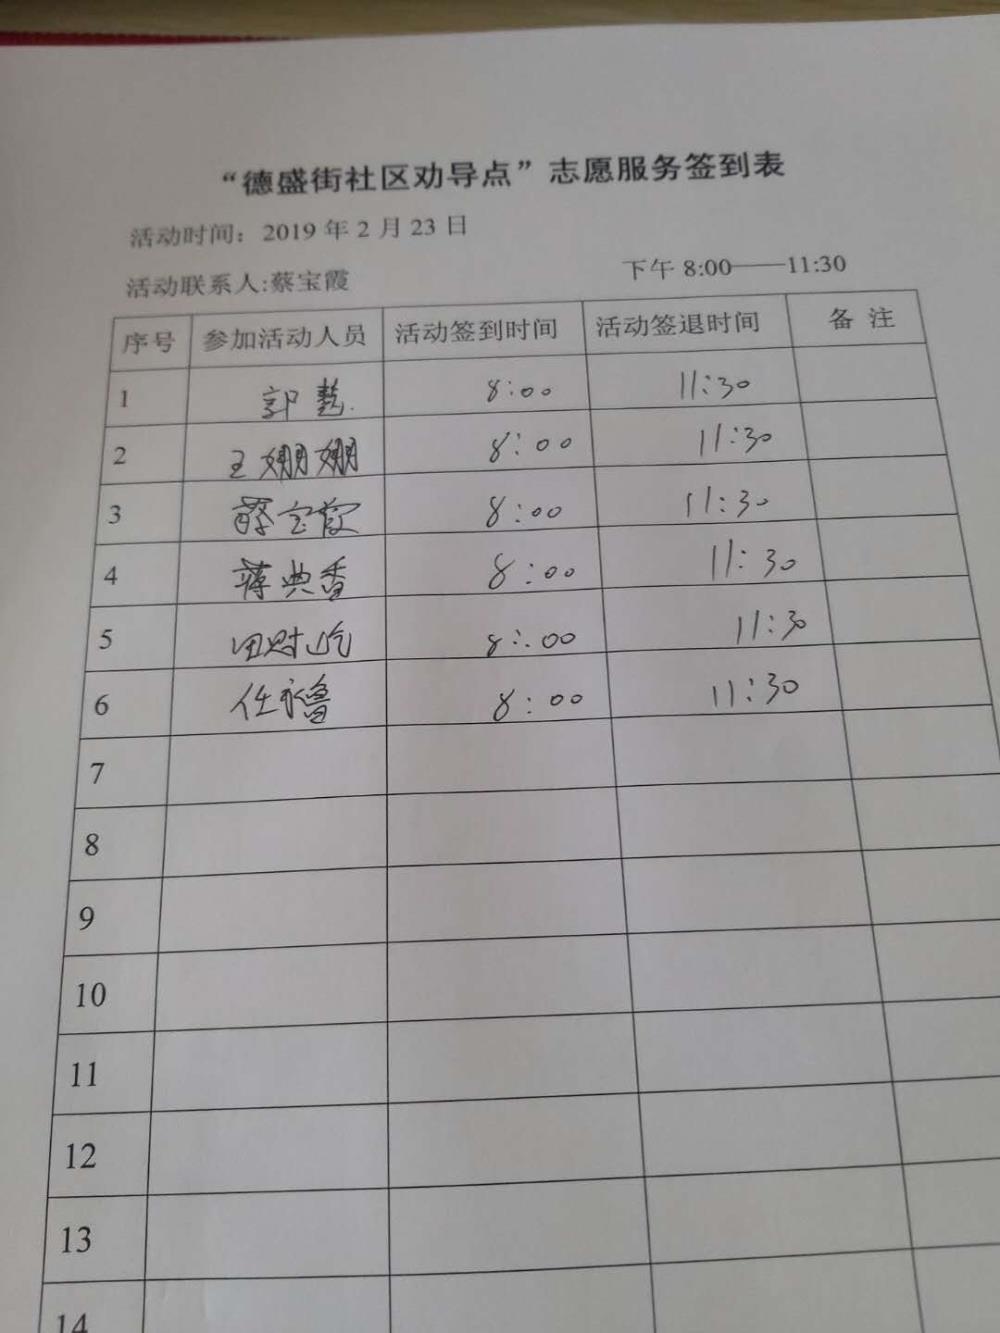 “德盛街社区劝导点”志愿服务签到表
活动时间：2019 年 2 月 23 日
活动联系人:蔡宝霞
下午 8:00——11:30
序号 参加活动人员 活动签到时间 活动签退时间 备 注
1 郭 8:00 11:30
2 王姗姗 8:00 11:30
3 蔡宝霞 8:00 11:30
4 蒋典香 8:00 11:30
5 田 8:00 11:30
6 任永鲁 8:00 11:30
7
8
9
10
11
12
13
14